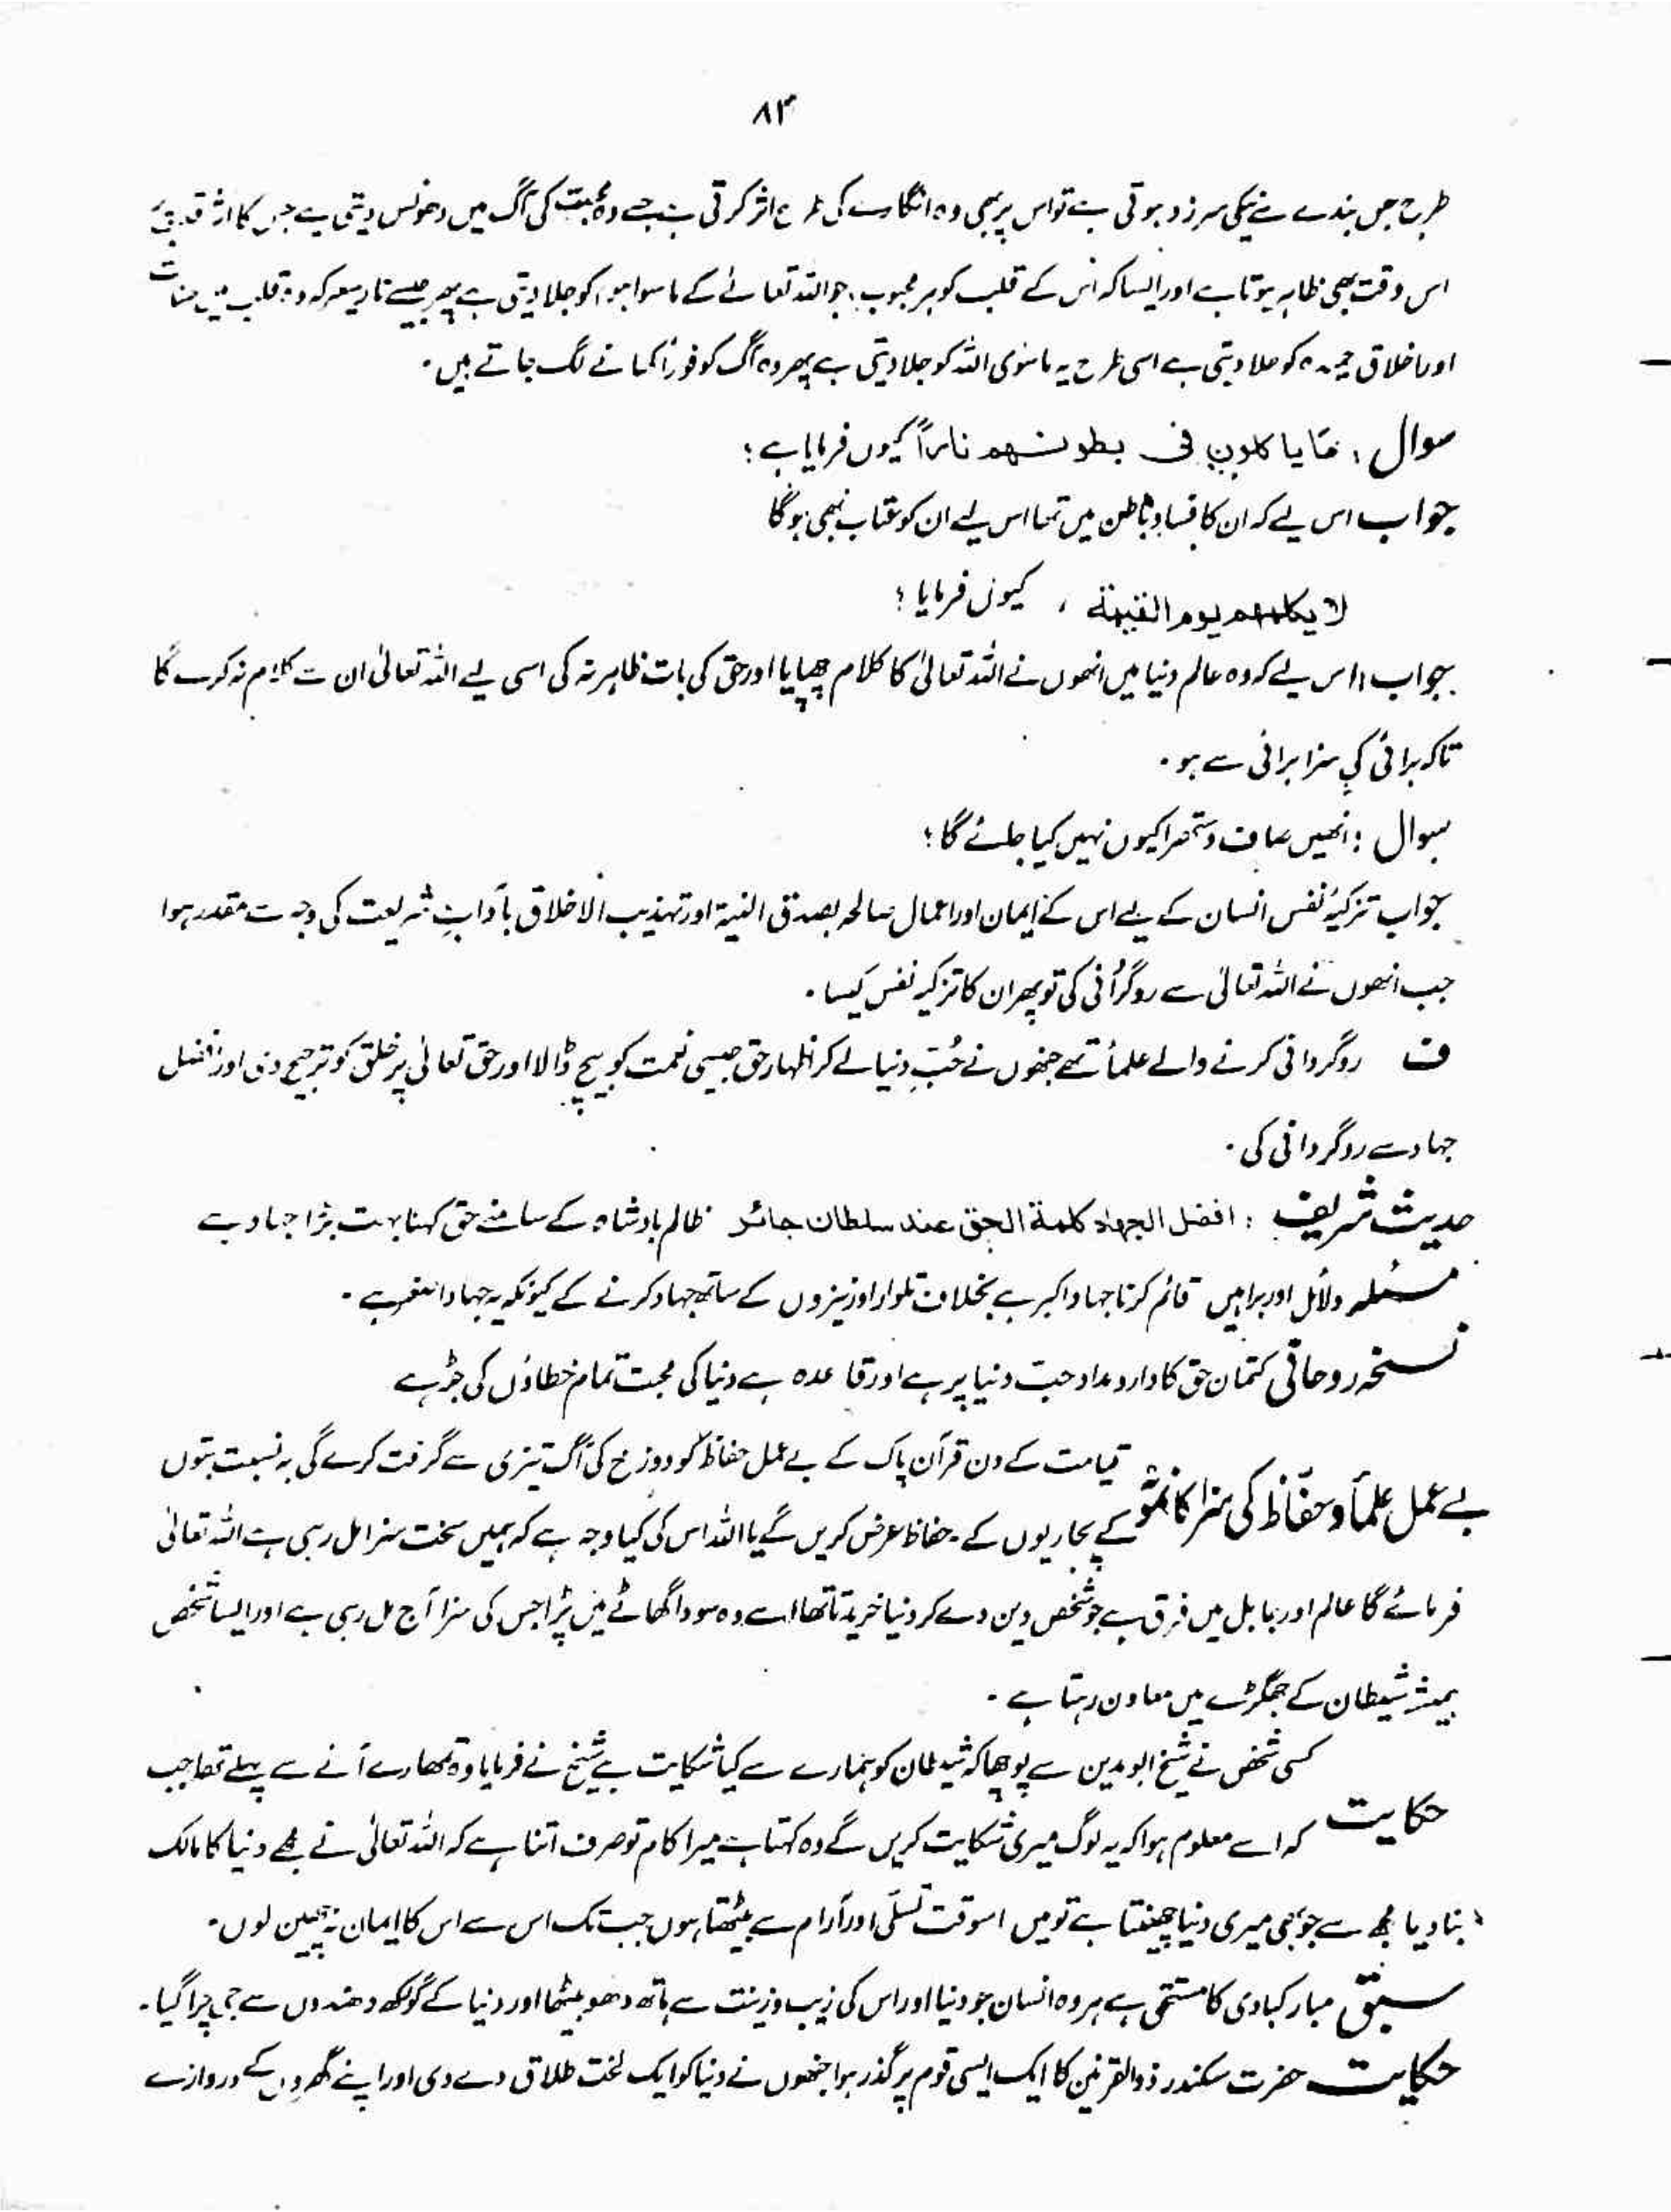 ۸۳
طرح جس بندے سے نیکی سرزد ہوتی ہے تو اس پر بھی وہ انگارے کی طرح اثر کرتی ہے جسے وہ محبت کی آگ میں دھونس دیتی ہے جس کا اثر
اس وقت بھی ظاہر ہوتا ہے اور ایسا کہ اس کے قلب کو ہر محبوب، جو اللہ تعالےٰ کے ماسوا ہو، کو جلا دیتی ہے پھر جیسے نار سعر کہ وہ قلب میں حسنات
اور اخلاق حمیدہ کو جلا دیتی ہے اسی طرح یہ ماسوی اللہ کو جلا دیتی ہے پھر وہ آگ کو فوراً کھانے لگ جاتے ہیں۔
سوال ؛ مَا یا کلون فی بطونہم ناراً کیوں فرمایا ہے ؛
جواب اس لیے کہ ان کا فساد باطن میں تھا اس لیے ان کو عتاب بھی ہوگا
لا یکلمہم یوم القیٰمۃ ، کیوں فرمایا ؛
جواب ؛ اس لیے کہ وہ عالم دنیا میں انھوں نے اللہ تعالیٰ کا کلام چھپایا اور حق کی بات ظاہر نہ کی اسی لیے اللہ تعالیٰ ان سے کلام نہ کرے گا
تاکہ برائی کی سزا برائی سے ہو۔
سوال ؛ انھیں صاف و ستھرا کیوں نہیں کیا جائے گا ؛
جواب تزکیۂ نفس انسان کے لیے اس کے ایمان اور اعمال صالحہ بصدق النیۃ اور تہذیب الاخلاق بآداب شریعت کی وجہ سے مقدر ہوا
جب انھوں نے اللہ تعالیٰ سے روگرانی کی تو پھر ان کا تزکیہ نفس کیسا۔
ف روگردانی کرنے والے علمأ تھے جنھوں نے حُبِّ دنیا لے کر اظہار حق جیسی نعمت کو بیچ ڈالا اور حق تعالیٰ پر خلق کو ترجیح دی اور افضل
جہاد سے روگردانی کی۔
حدیث شریف ؛ افضل الجہاد کلمۃ الحق عند سلطان جائر ظالم بادشاہ کے سامنے حق کہنا بہت بڑا جہاد ہے
مسئلہ دلائل اور براہین قائم کرنا جہاد اکبر ہے بخلاف تلوار اور نیزوں کے ساتھ جہاد کرنے کے کیونکہ یہ جہاد اصغر ہے۔
نسخہ روحانی کتمان حق کا دارومدار حب دنیا پر ہے اور قاعدہ ہے دنیا کی محبت تمام خطاؤں کی جڑ ہے
بے عمل علمأ و حفّاظ کی سزا کا نمونہ قیامت کے دن قرآن پاک کے بے عمل حفاظ کو دوزخ کی آگ تیزی سے گرفت کرے گی بہ نسبت بتوں
کے پجاریوں کے۔ حفاظ عرض کریں گے یا اللہ اس کی کیا وجہ ہے کہ ہمیں سخت سزا مل رہی ہے اللہ تعالیٰ
فرمائے گا عالم اور جاہل میں فرق ہے جو شخص دین دے کر دنیا خریدتا تھا اسے وہ سودا گھاٹے میں پڑا جس کی سزا آج مل رہی ہے اور ایسا شخص
ہمیشہ شیطان کے جھگڑے میں معاون رہتا ہے۔
حکایت کسی شخص نے شیخ ابو مدین سے پوچھا کہ شیطان کو ہمارے سے کیا شکایت ہے شیخ نے فرمایا وہ تمھارے آنے سے پہلے تھا جب
کہ اسے معلوم ہوا کہ یہ لوگ میری شکایت کریں گے وہ کہتا ہے میرا کام تو صرف اتنا ہے کہ اللہ تعالیٰ نے مجھے دنیا کا مالک
بنا دیا مجھ سے جو بھی میری دنیا چھینتا ہے تو میں اسوقت تسلّی اور آرام سے بیٹھتا ہوں جب تک اس سے اس کا ایمان نہ چھین لوں۔
سبق مبارکبادی کا مستحق ہے ہر وہ انسان جو دنیا اور اس کی زیب و زینت سے ہاتھ دھو بیٹھا اور دنیا کے گورکھ دھندوں سے جی چرا گیا۔
حکایت حضرت سکندر ذوالقرنین کا ایک ایسی قوم پر گذر ہوا جنھوں نے دنیا کو ایک لخت طلاق دے دی اور اپنے گھروں کے دروازے